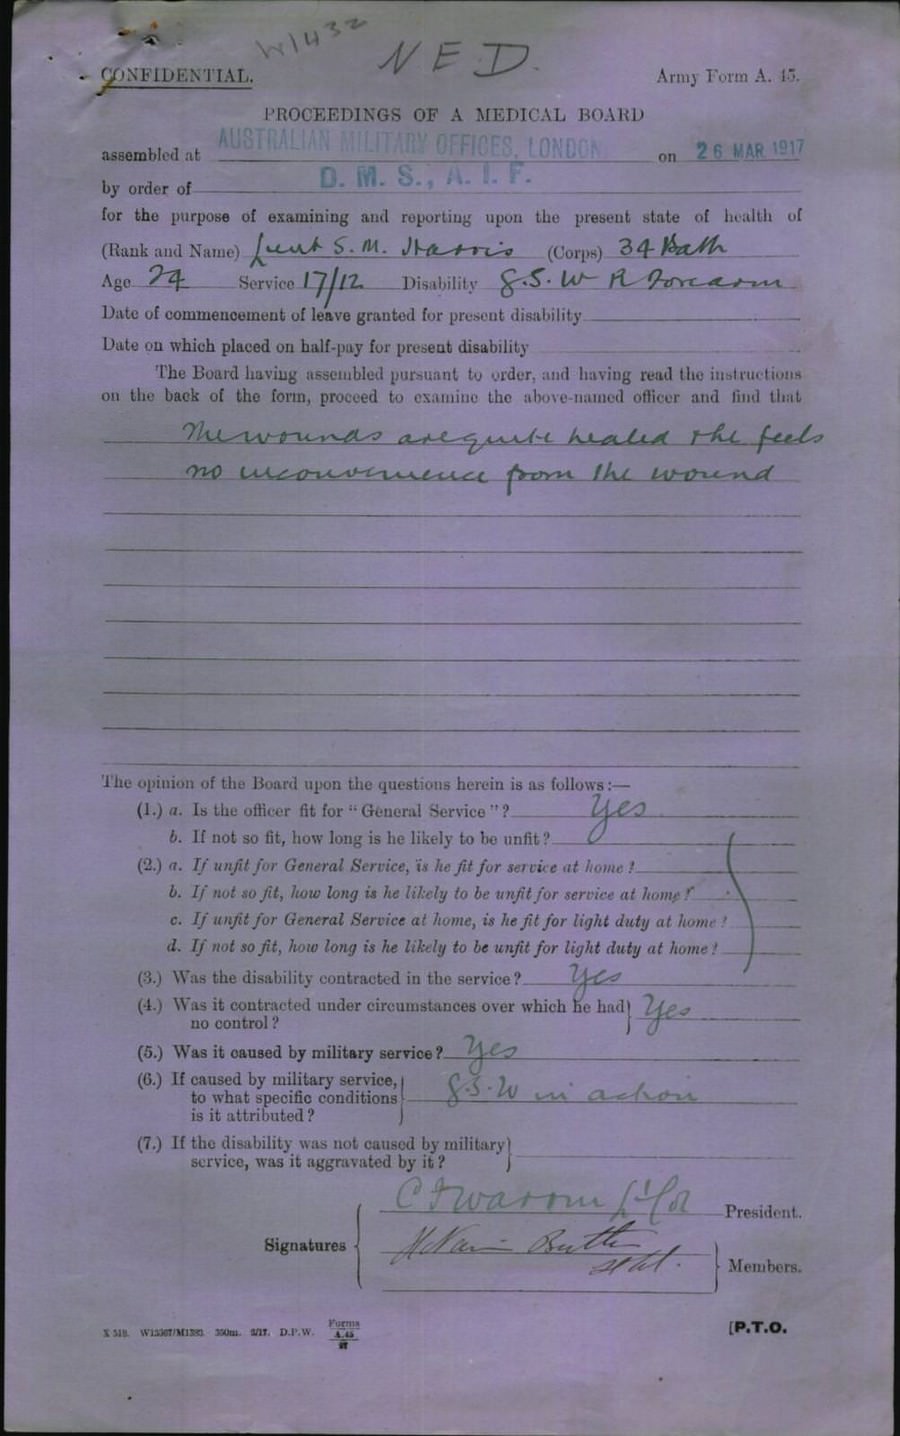 W1432
N E D.
CONFIDENTIAL.
Army Form A. 45.
PROCEEDINGS OF A MEDICAL BOARD
assembled at AUSTRALIAN MILITARY OFFICES, LONDON on 26 MAR 1917
by order of D. M. S., A. I. F.
for the purpose of examining and reporting upon the present state of health of
(Rank and Name) Lieut S. M. Harris (Corps) 34 Batt
Age 24 Service 17/12 Disability G.S.W R Forearm
Date of commencement of leave granted for present disability
Date on which placed on half-pay for present disability
The Board having assembled pursuant to order, and having read the instructions
on the back of the form, proceed to examine the above-named officer and find that
The wounds are quite healed & he feels
no inconvenience from the wound
The opinion of the Board upon the questions herein is as follows:—
(1.) a. Is the officer fit for "General Service"? Yes
b. If not so fit, how long is he likely to be unfit?
(2.) a. If unfit for General Service, is he fit for service at home?
b. If not so fit, how long is he likely to be unfit for service at home?
c. If unfit for General Service at home, is he fit for light duty at home?
d. If not so fit, how long is he likely to be unfit for light duty at home?
(3.) Was the disability contracted in the service? Yes
(4.) Was it contracted under circumstances over which he had
no control? Yes
(5.) Was it caused by military service? Yes
(6.) If caused by military service,
to what specific conditions G.S.W in action
is it attributed?
(7.) If the disability was not caused by military
service, was it aggravated by it?
President.
Signatures
Members.
X 519. W13367/M1383. 350m. 2/17. D.P.W. Forms
A.45
27
[P.T.O.